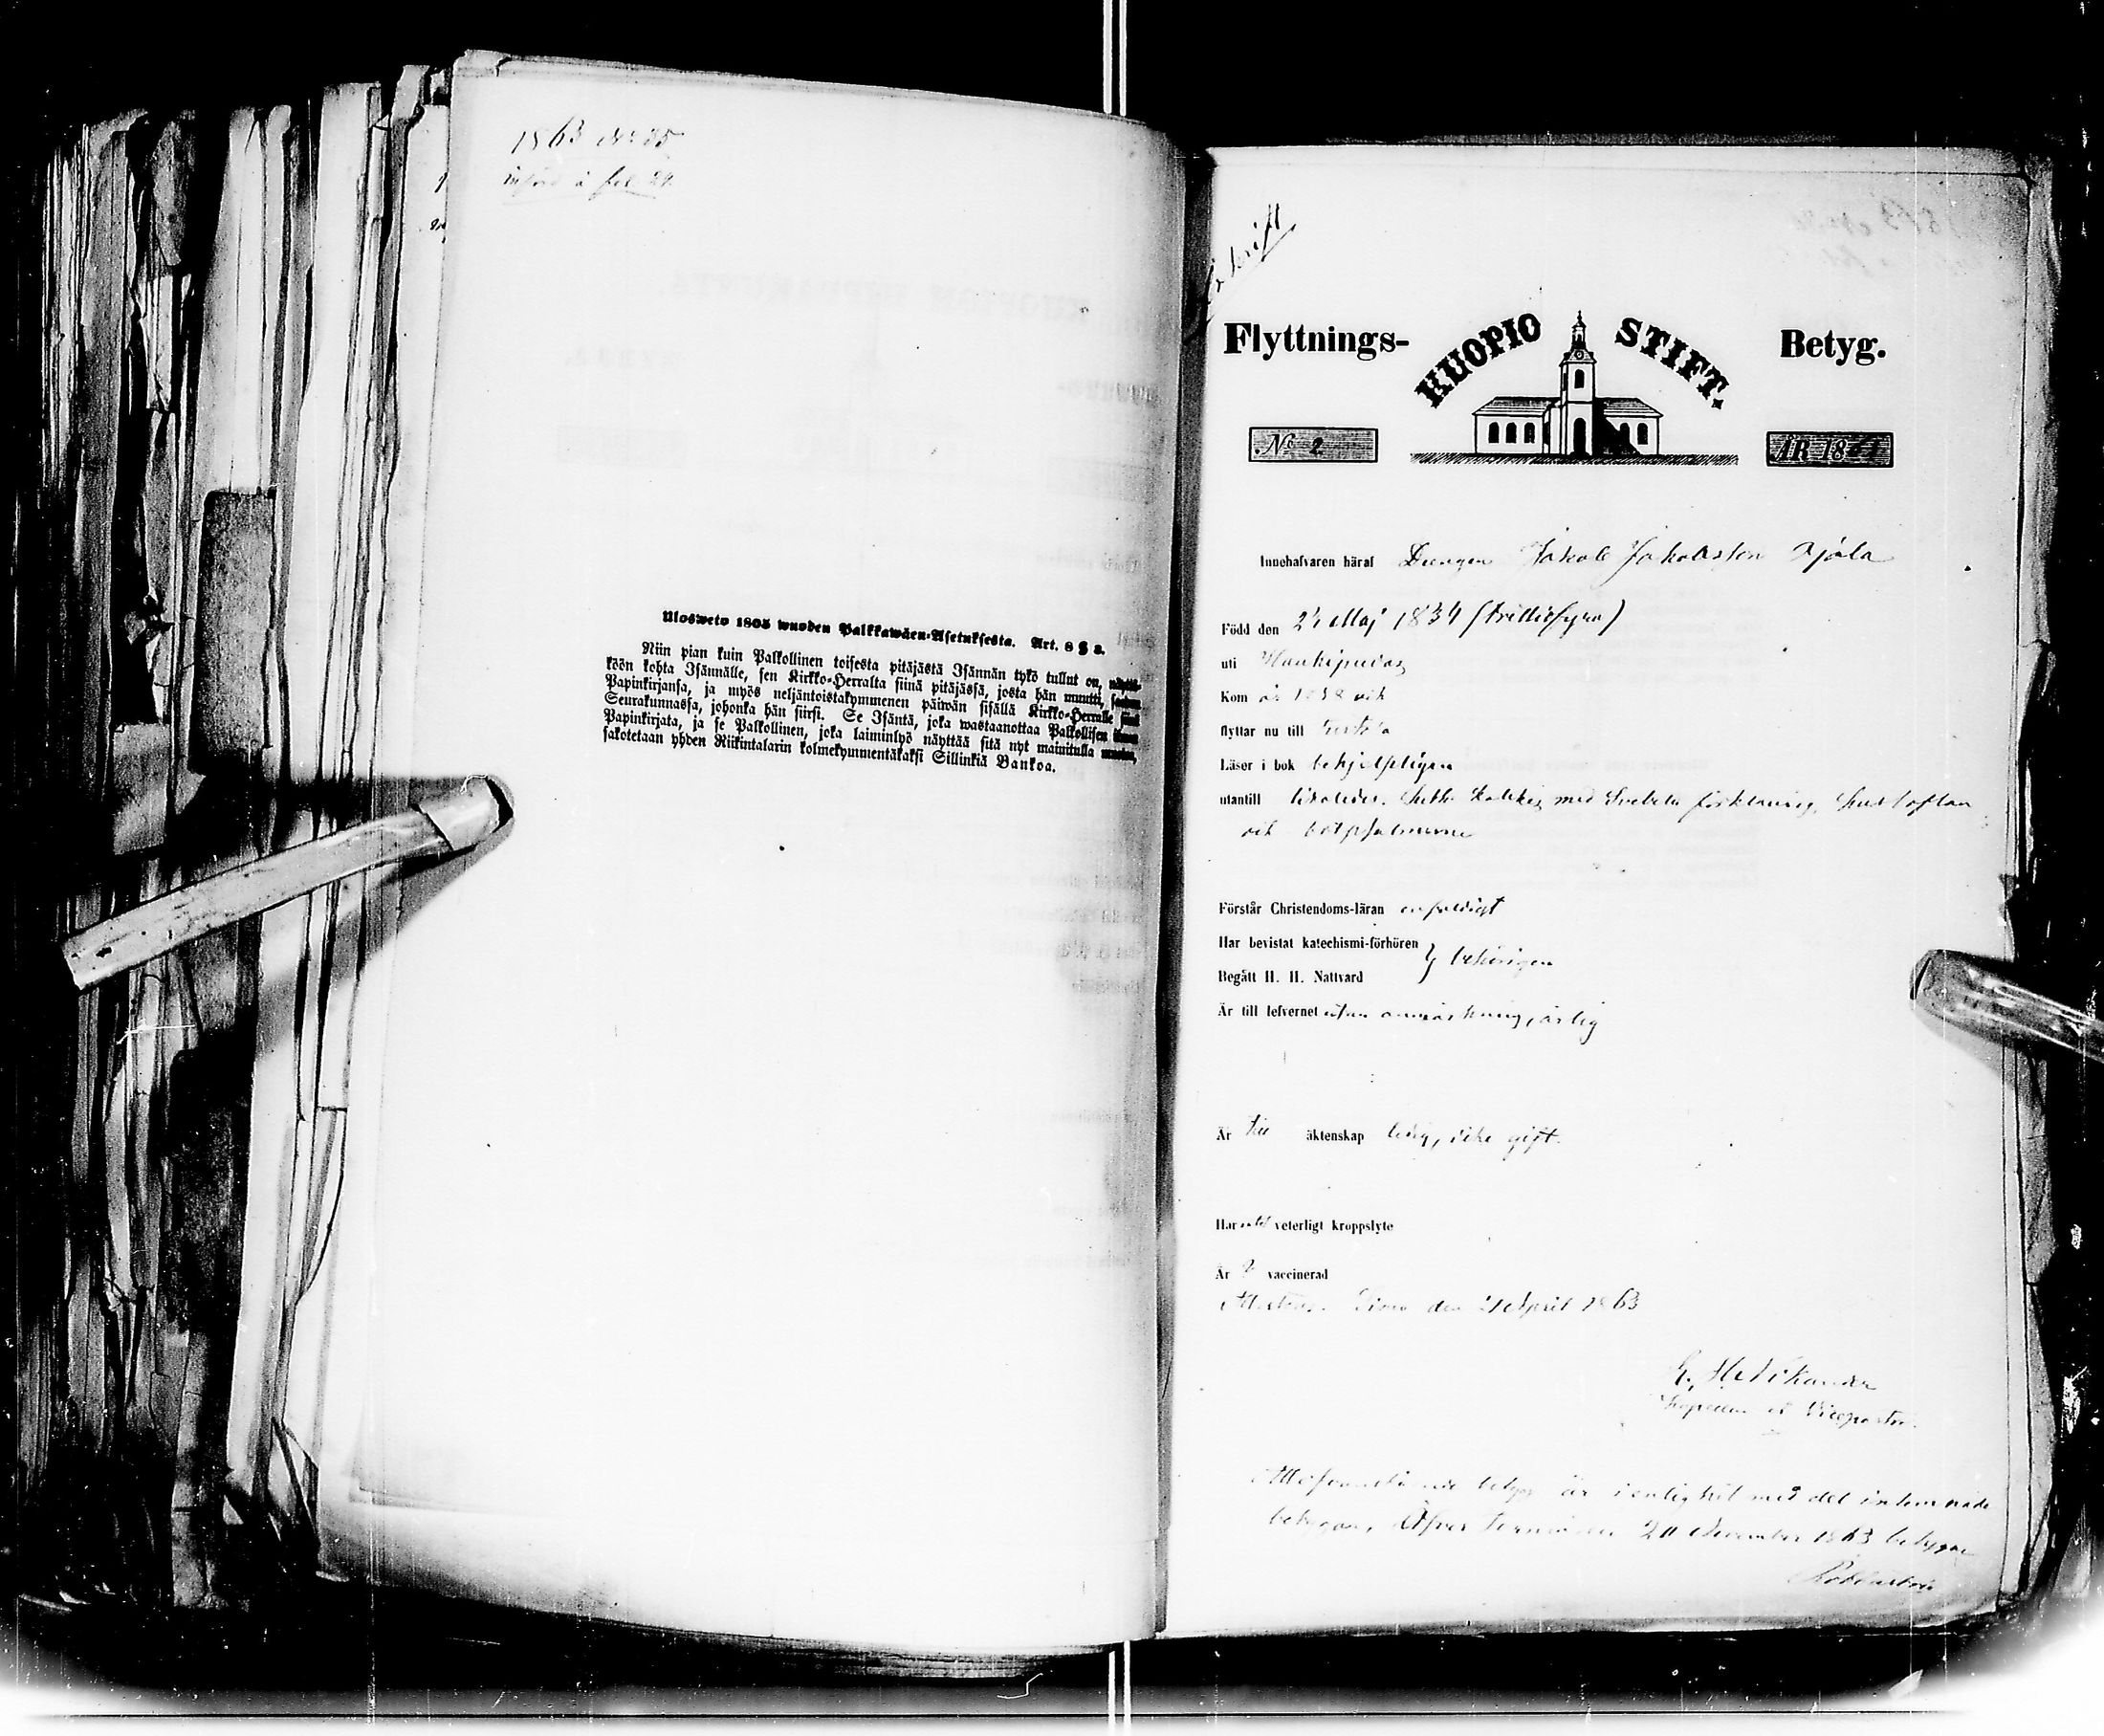 1863 No 35
införd å fol 29.
Ulosweto 1805 wuoden Palkkawäen-Asetuksesta. Art. 8 § 3.
Niin pian kuin Palkollinen toisesta pitäjästä Isännän tykö tullut on,
köön kohta Isännälle, sen Kirkko-Herralta siinä pitäjässä, josta hän muutti,
Papinkirjansa, ja myös neljäntoistakymmenen päiwän sisällä Kirkko-Herralle
Seurakunnassa, johonka hän siirsi. Se Isäntä, joka wastaanottaa Palkollisen
Papinkirjata, ja se Palkollinen, joka laiminlyö näyttää sitä nyt mainitulla
sakotetaan yhden Riikintalarin kolmekymmentäkaksi Sillinkiä Bankoa.
Flyttnings- KUOPIO STIFT. Betyg.
No 2. ÅR 18
Innehafvaren häraf Drengen Jakob Jakobsson
Född den 24 Maj 1834 (trettiofyra)
uti Haukipudas
Kom år 1858 och
flyttar nu till
Läser i bok behjelpligen
utantill Lutheri katekes med Svebelii förklaring, hustaflan
och botpsalmerne
Förstår Christendoms-läran enfaldigt
Har bevistat katechismi-förhören } behörigen
Begått H. H. Nattvard
Är till lefvernet utan anmärkning, ärlig
Är till äktenskap ledig, icke gift.
Har intet veterligt kroppslyte
Är vaccinerad
den 21 April 1863
Kapellan et Vicepastor.
betyg är i enlighet med det inlemnade
betygas, 1863 betygar